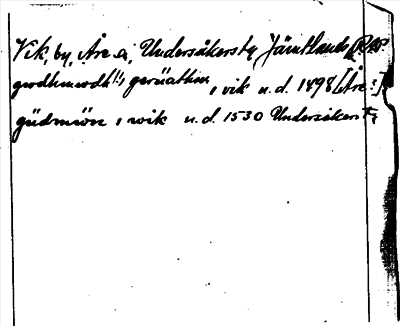 Vik, by, Åre s:n, Undersåkers tg, Jämtlands
gwdhmwdh(!), geruathin, i vik u.d. 1498 [Åre?]
gudmwn i wik u.d. 1530 Undersåkers tg